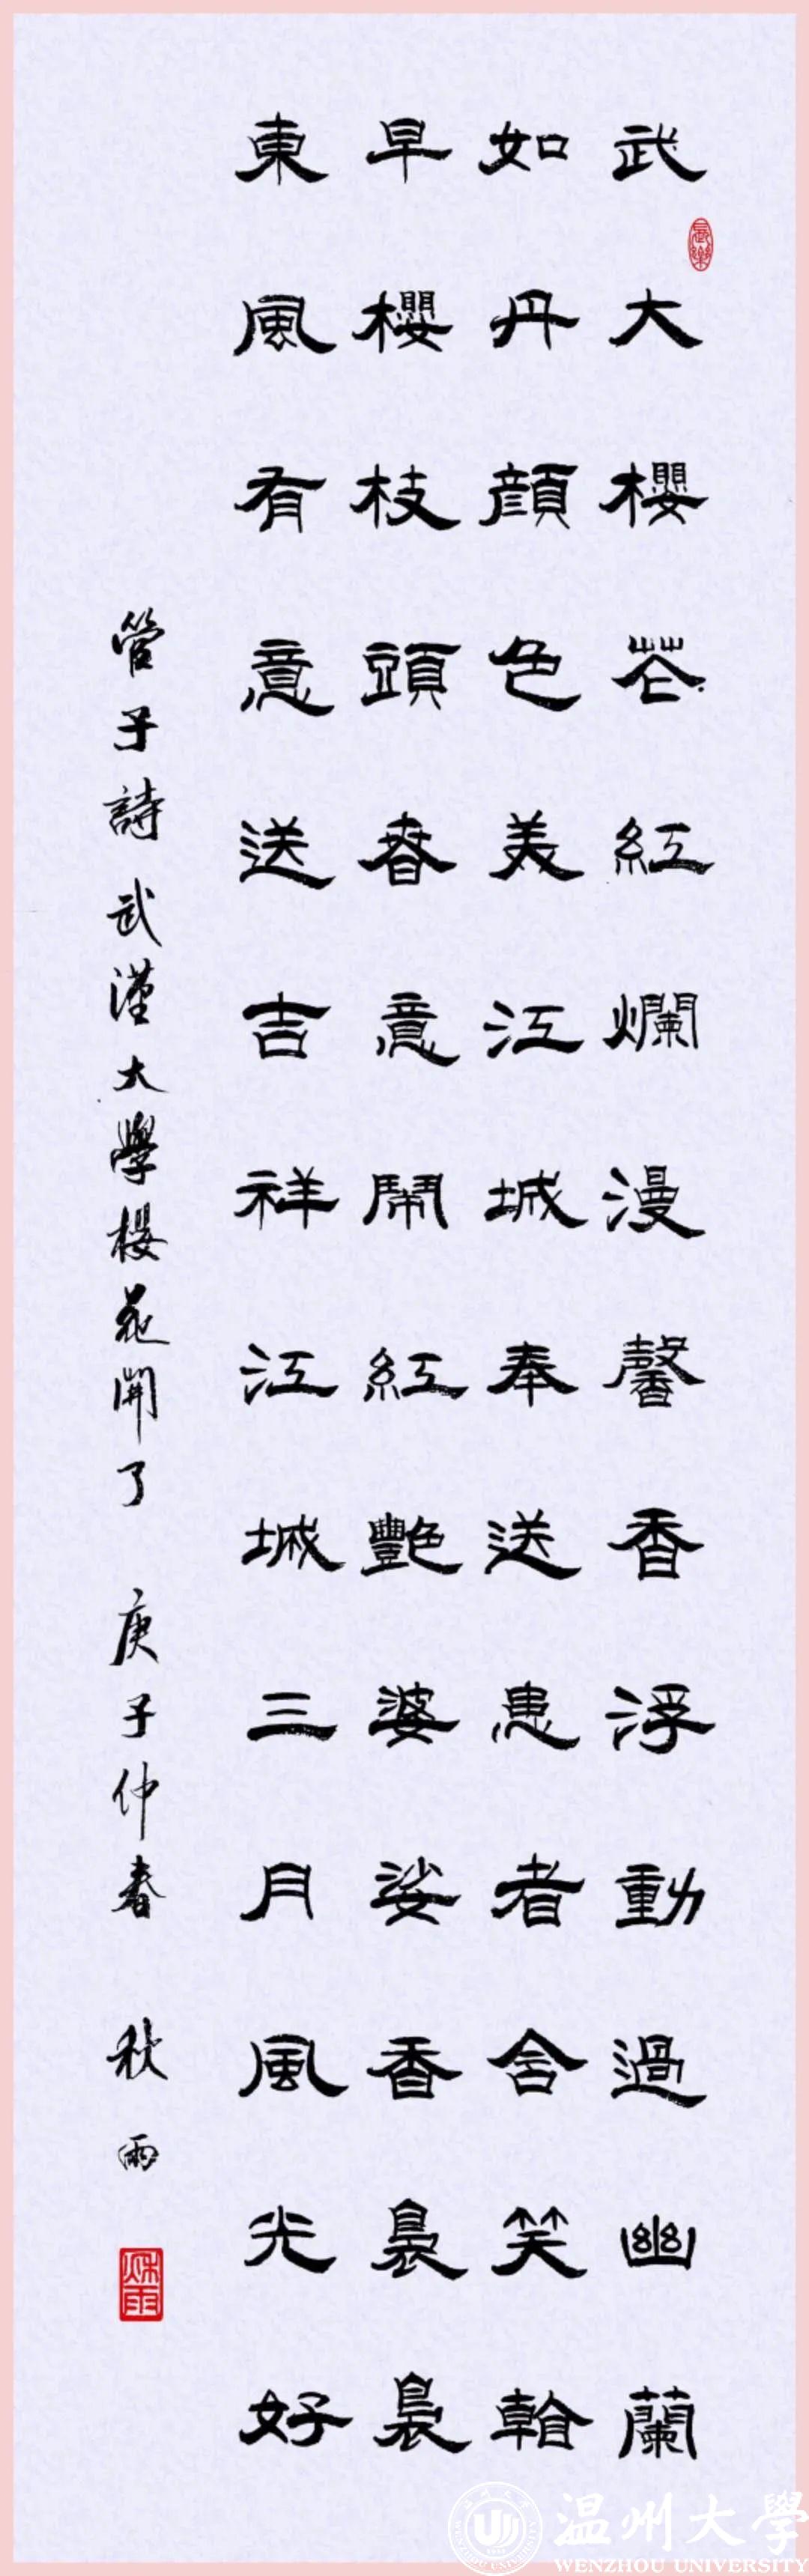 武大櫻花紅爛漫馨香浮動過幽蘭
如丹顏色美江城奉送患者含笑
早櫻枝頭春意鬧紅艷婆娑香裊裊
東風有意送吉祥江城三月風光好
管子詩 武漢大學櫻花開了 庚子仲春 秋雨
秋雨
温州大學
WENZHOU UNIVERSITY